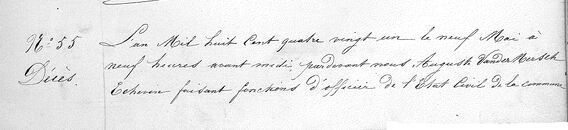 N.º 55
Décès.
L'an Mil huit Cent quatre vingt un le neuf Mai à
neuf heures avant midi, pardevant nous Auguste VanderMersch
Echevin faisant fonctions d'officier de l'Etat Civil de la commune